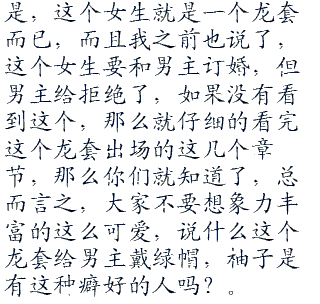 是，这个女生就是一个龙套
而已，而且我之前也说了，
这个女生要和男主订婚，但
男主给拒绝了，如果没有看
到这个，那么就仔细的看完
这个龙套出场的这几个章
节，那么你们就知道了，总
而言之，大家不要想象力丰
富的这么可爱，说什么这个
龙套给男主戴绿帽，柚子是
有这种癖好的人吗？。